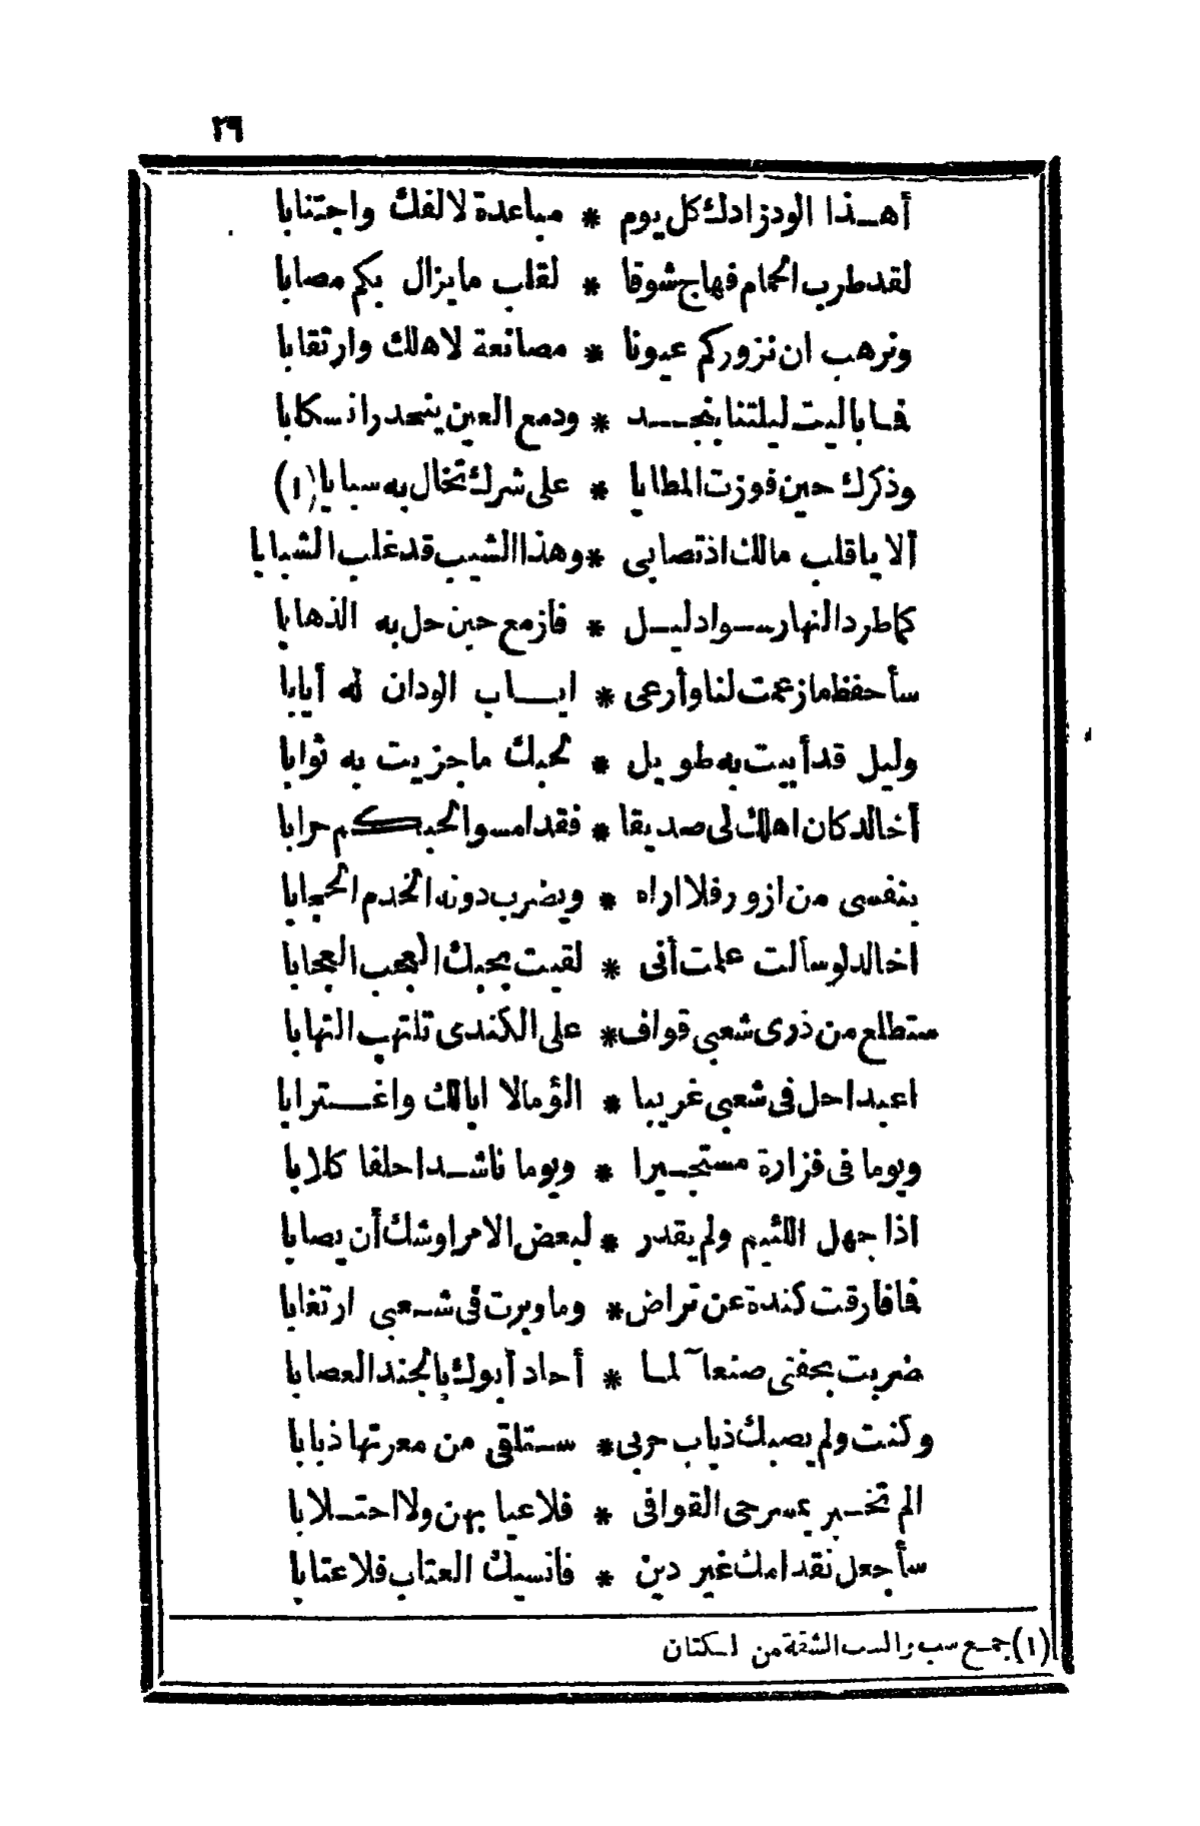 ٢٩
أهذا الود زادك كل يوم * مباعدة لالفك واجتنابا
لقد طرب الحمام فهاج شوقا * لقلب مايزال بكم مصابا
ونرهب ان نزوركم عيونا * مصانعة لاهلك وارتقابا
فمابا ليت ليلتنا بنجد * ودمع العين ينحدر انسكابا
وذكرك حين فوزت المطايا * على شرك تخال به سبابا (١)
ألا ياقلب مالك اذ تصابى * وهذا الشيب قد غلب الشبابا
كما طرد النهار سواد ليل * فازمع حين حل به الذهابا
سأحفظ مازعمت لنا وأرعى * اياب الود ان له أيابا
وليل قد أبيت به طويل * لحبك ماجزيت به ثوابا
أخالد كان اهلك لى صديقا * فقد امسوا لحبكم حرابا
بنفسى من ازور فلا اراه * ويضرب دونه الخدم الحجابا
اخالد لو سألت علمت أنى * لقيت بحبك العجب العجابا
ستطلع من ذرى شعبى قواف * على الكندى تلتهب التهابا
اعبدا حل فى شعبى غريبا * الؤما لا ابالك واغترابا
ويوما فى فزارة مستجيرا * ويوما ناشدا حلفا كلابا
اذا جهل اللئيم ولم يقدر * لبعض الامر اوشك أن يصابا
فما فارقت كندة عن تراض * وما وبرت فى شعبى ارتغابا
ضربت بحفنى صنعآ لما * أحاد أبوك بالجند العصابا
وكنت ولم يصبك ذباب حربى * ستلقى من معرتها ذبابا
الم تخبر بمسرحى القوافى * فلاعيا بهن ولا اجتلابا
سأجعل نقد امك غير دين * فانسيك العتاب فلاعتابا
(١) جمع سب والسب الشقة من الكتان